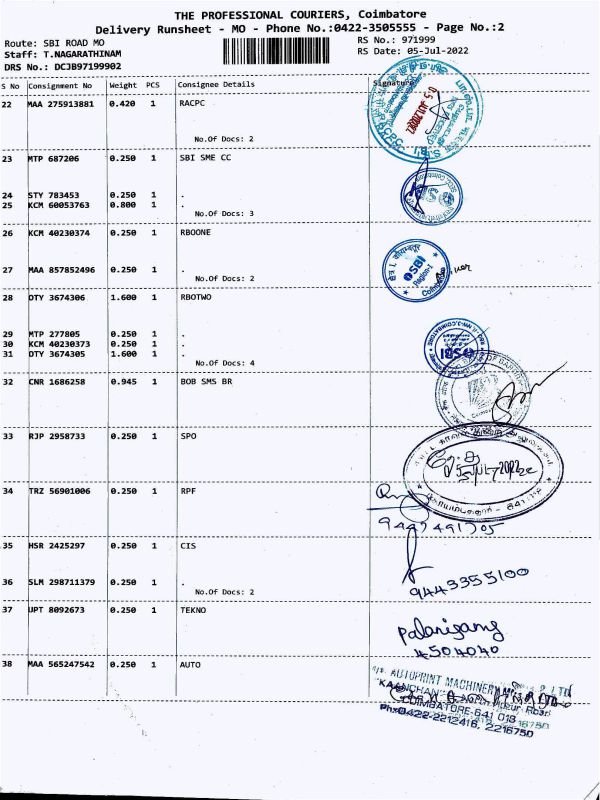 THE PROFESSIONAL COURIERS, Coimbatore
Delivery Runsheet - MO - Phone No.:0422-3505555 - Page No.:2
Route: SBI ROAD MO
RS No.: 971999
Staff: T.NAGARATHINAM
RS Date: 05-Jul-2022
DRS No.: DCJB97199902
S No Consignment No Weight PCS Consignee Details Signature
22 MAA 275913881 0.420 1 RACPC
No.Of Docs: 2
23 MTP 687206 0.250 1 SBI SME CC
24 STY 783453 0.250 1 .
25 KCM 60053763 0.800 1 .
No.Of Docs: 3
26 KCM 40230374 0.250 1 RBOONE
SBI
Region-I
27 MAA 857852496 0.250 1 .
No.Of Docs: 2
28 OTY 3674306 1.600 1 RBOTWO
29 MTP 277805 0.250 1 .
30 KCM 40230373 0.250 1 .
31 OTY 3674305 1.600 1 .
SBI
No.Of Docs: 4
32 CNR 1686258 0.945 1 BOB SMS BR
33 RJP 2958733 0.250 1 SPO
34 TRZ 56901006 0.250 1 RPF
35 HSR 2425297 0.250 1 CIS
9443355100
36 SLM 298711379 0.250 1 .
No.Of Docs: 2
37 UPT 8092673 0.250 1 TEKNO
4504040
38 MAA 565247542 0.250 1 AUTO
AUTOPRINT MACHINERY
COIMBATORE-641 018
Ph:0422-2212416, 2216750